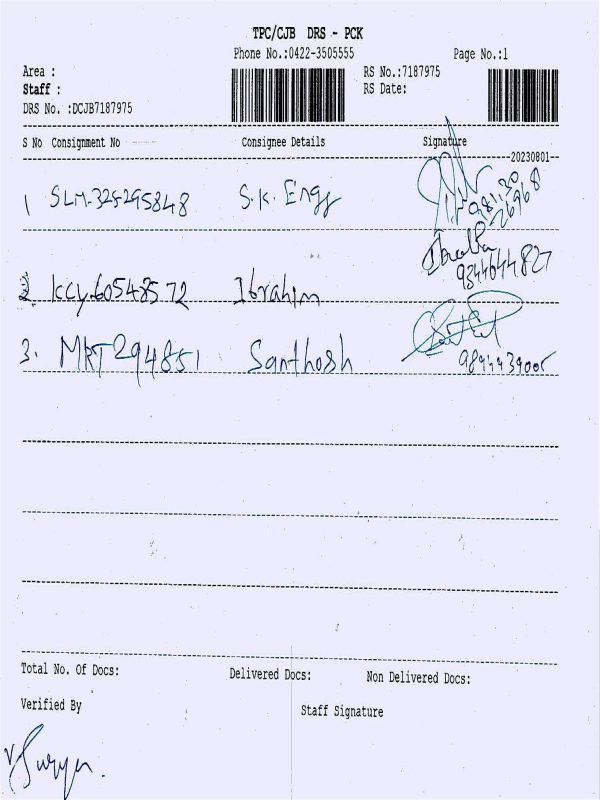 TPC/CJB DRS - PCK
Phone No.:0422-3505555 Page No.:1
Area : RS No.:7187975
Staff : RS Date:
DRS No. :DCJB7187975
S No Consignment No Consignee Details Signature
20230801
1 SLM-325295848 S.K. Engg
2. KCY-60548572 Ibrahim 9344644827
3. MKT294851 Santhosh
Total No. Of Docs: Delivered Docs: Non Delivered Docs:
Verified By Staff Signature